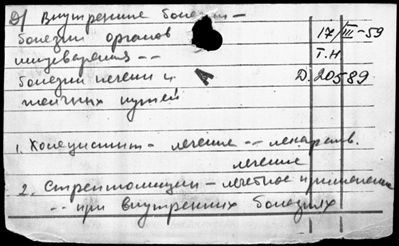 Д) Внутренние болезни –
болезни органов 17/III-59
пищеварения -- Т.Н
болезни печени и А Д. 20589
желчных путей
1. Холецистит - лечение -- лекарств.
лечение
2. Стрептомицин – лечебное применение
-- при внутренних болезнях